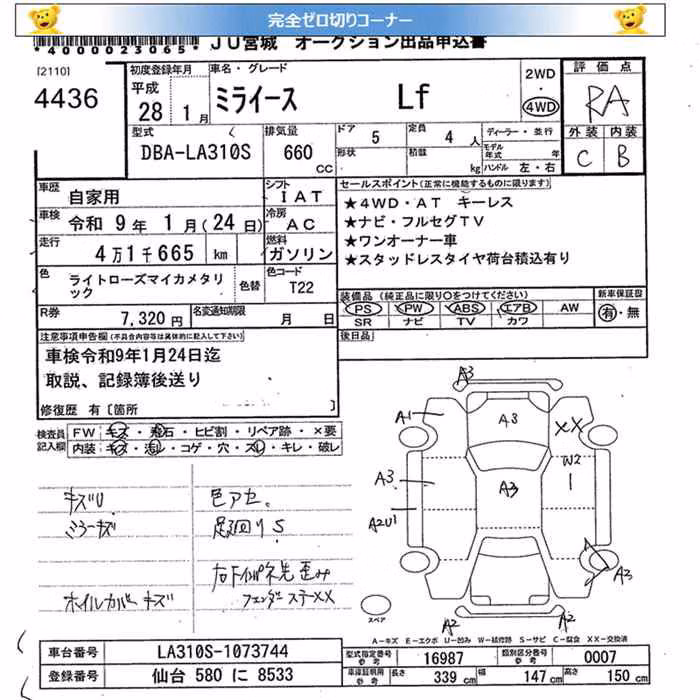 完全ゼロ切りコーナー
*4000023065* JU宮城 オークション出品申込書
[2110]
4436
初度登録年月 平成 28 1月
車名・グレード ミライース Lf
2WD・4WD
評価点 RA
外装 C 内装 B
型式 DBA-LA310S
排気量 660 CC
ドア 5 定員 4人 ディーラー・並行
形状 積載 kg モデル年式 年 ハンドル 左・右
車歴 自家用
シフト IAT
車検 令和 9年 1月(24日)
冷房 AC
走行 4万1千665 km
燃料 ガソリン
色 ライトローズマイカメタリック 色替
色コード T22
R券 7,320円 名変通知期限 月 日
セールスポイント(正常に機能するものに限ります)
★4WD・AT キーレス
★ナビ・フルセグTV
★ワンオーナー車
★スタッドレスタイヤ荷台積込有り
装備品(純正品に限り○をつけてください) 新車保証書
PS PW ABS エアB AW 有・無
SR ナビ TV カワ
後日品
注意事項申告欄(不具合内容等は具体的に記入して下さい)
車検令和9年1月24日迄
取説、記録簿後送り
修復歴 有[箇所 ]
検査員記入欄
FW キズ・飛石・ヒビ割・リペア跡・×要
内装 キズ・汚レ・コゲ・穴・スレ・キレ・破レ
キズU 色アセ。
ミラーキズ 足廻りS
ホイルカバーキズ フェンダーステーXX
A3
A1 A3 XX
W2
A3 A3
A2U1
A3
A2 A2
スペア
A-キズ E-エクボ U-凹み W-補修跡 S-サビ C-腐食 XX-交換済
車台番号 LA310S-1073744
登録番号 仙台 580 に 8533
型式指定番号 参考 16987 類別区分番号 参考 0007
車庫証明用 参考 長さ 339 cm 幅 147 cm 高さ 150 cm